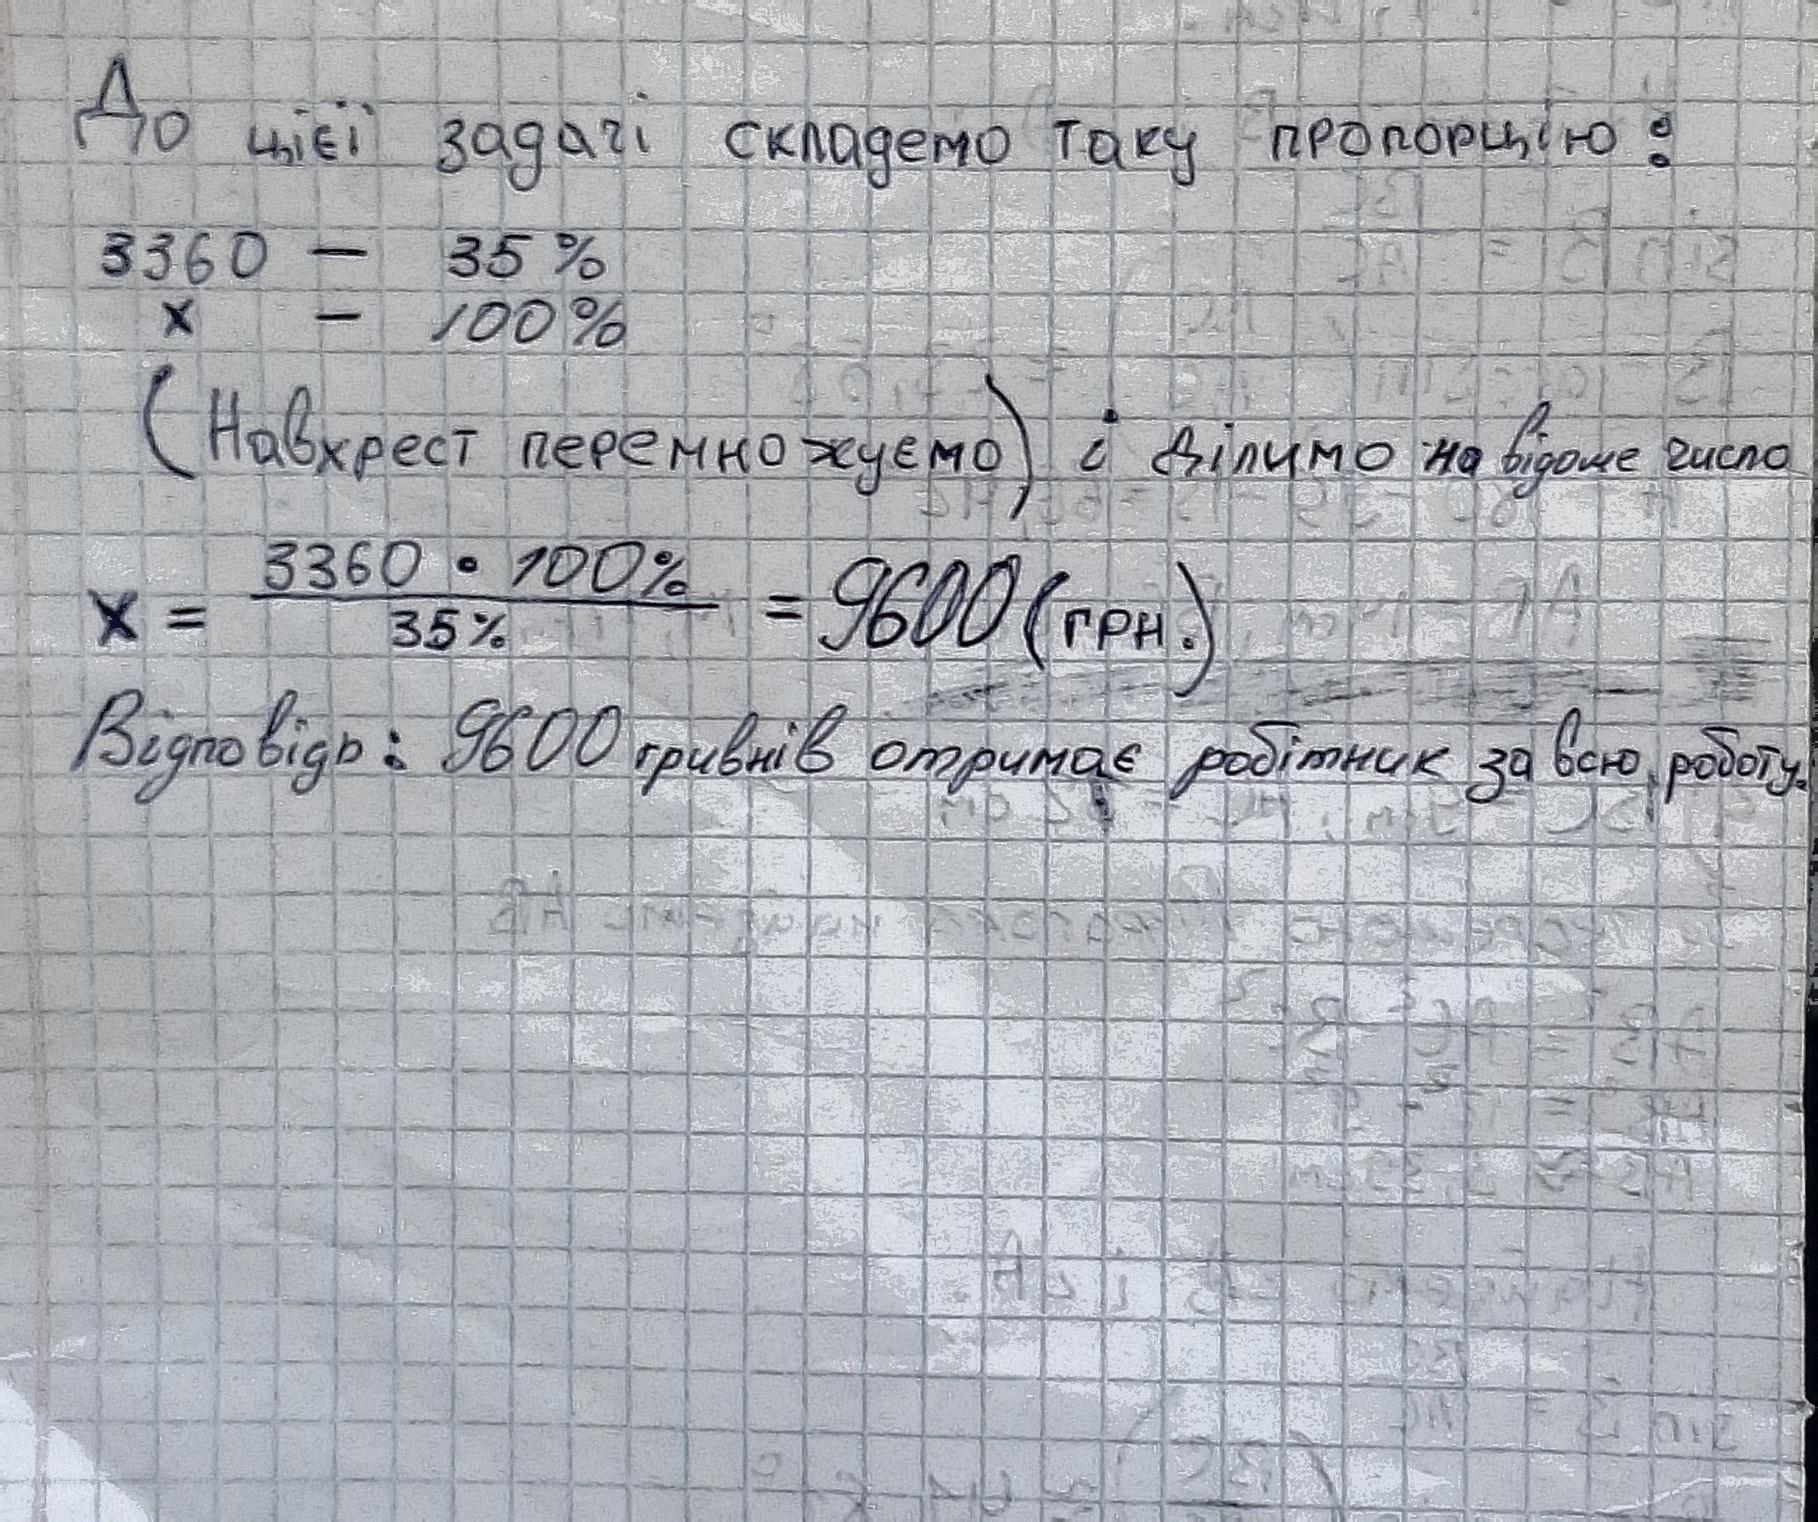 До цієї задачі складемо таку пропорцію:
3360 - 35%
x - 100%
(Навхрест перемножуємо) і ділимо на відоме число
x = 3360 • 100% / 35% = 9600 (грн.)
Відповідь: 9600 гривнів отримає робітник за всю роботу.